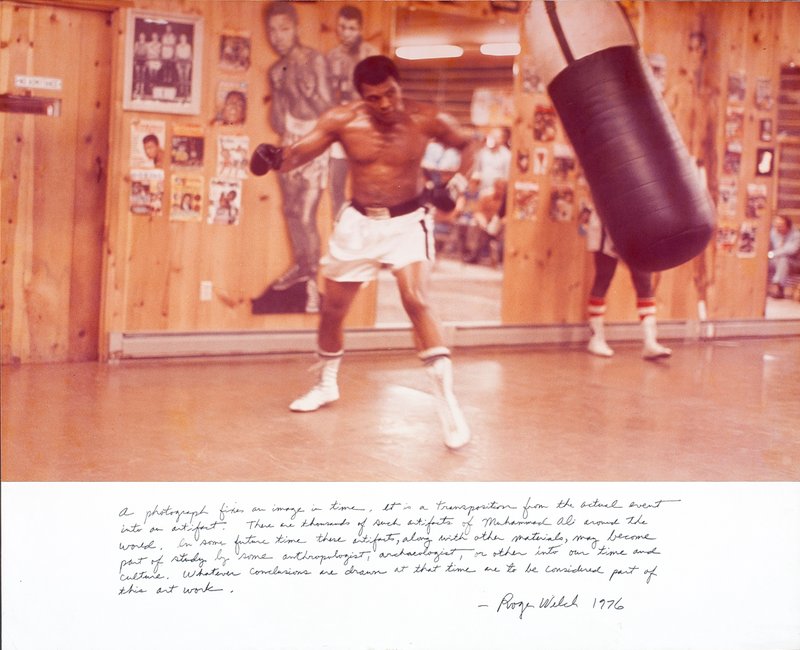 NO ADMITTANCE
A photograph fixes an image in time. It is a transposition from the actual event
into an artifact. There are thousands of such artifacts of Muhammad Ali around the
world. In some future time these artifacts, along with other materials, may become
part of study by some anthropologist, archaeologist, or other into our time and
culture. Whatever conclusions are drawn at that time are to be considered part of
this art work.
— Roger Welch 1976